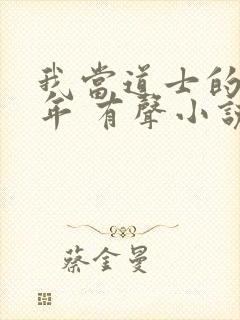 我當道士的
年 有聲小説
蔡金曼